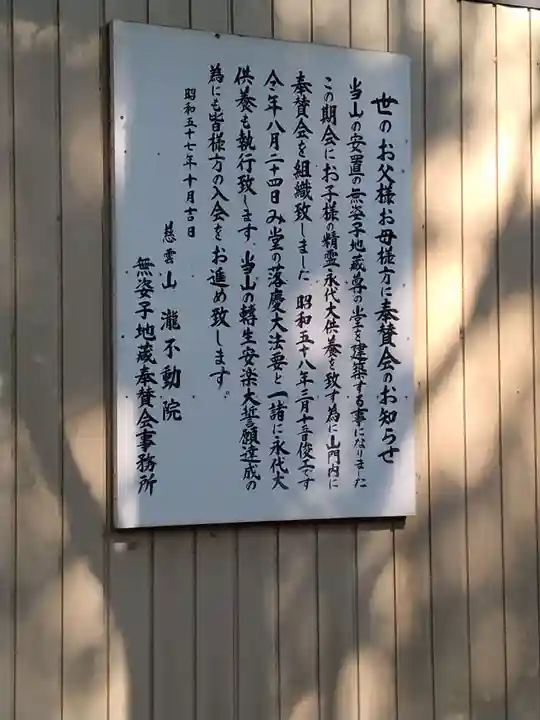 世のお父様お母様方に奉賛会のお知らせ
当山の安置の無姿子地蔵尊の堂を建築する事になりました
この期会にお子様の精霊永代大供養を致す為に山門内に
奉賛会を組織致しました。昭和五十八年三月十五日俊工です
今年八月二十四日み堂の落慶大法要と一諸に永代大
供養も執行致します。当山の轉生安楽大誓願達成の
為にも皆様方の入会をお進め致します。
昭和五十七年十月吉日
慈雲山 瀧不動院
無姿子地蔵奉賛会事務所